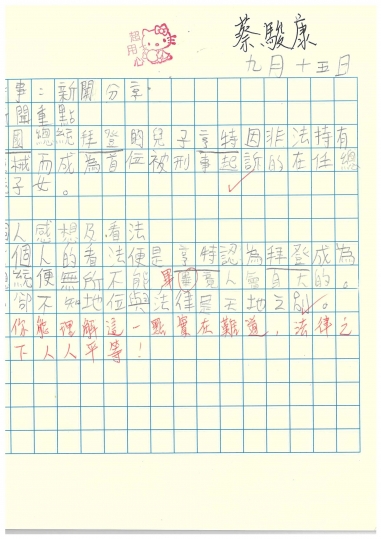 超用心
蔡駿康
九月十五日
事：新聞分享
聞重點
國總統拜登的兒子亨特因非法持有
械而成為首位被刑事起訴的在任總
子女。
人感想及看法
個人的看法便是亨特認為拜登成為
統便無所不能畢竟人會自大的。
卻不知地位與法律是天地之別。
你能理解這一點實在難道，法律之
下人人平等！